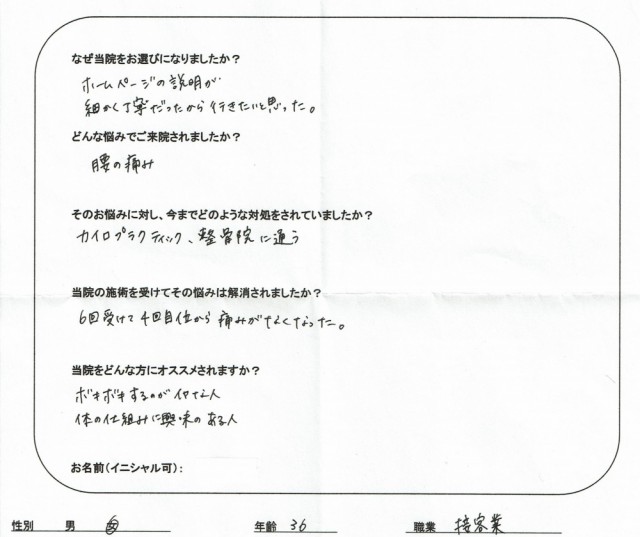 なぜ当院をお選びになりましたか？
ホームページの説明が
細かく丁寧だったから行きたいと思った。
どんな悩みでご来院されましたか？
腰の痛み
そのお悩みに対し、今までどのような対処をされていましたか？
カイロプラクティック、整骨院に通う
当院の施術を受けてその悩みは解消されましたか？
6回受けて4回目位から痛みがなくなった。
当院をどんな方にオススメされますか？
ボキボキするのがイヤな人
体の仕組みに興味のある人
お名前（イニシャル可）：
性別 男 女 年齢 36 職業 接客業